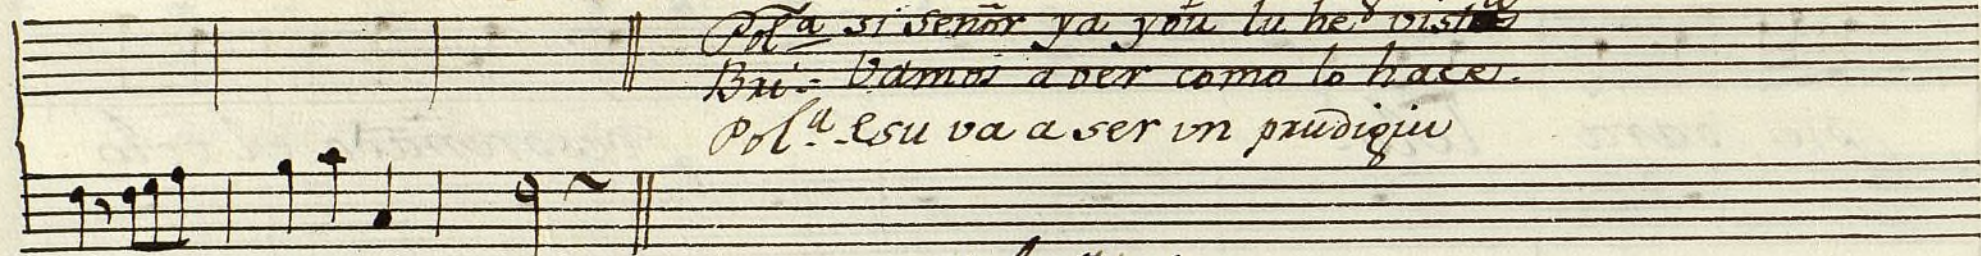 Pol.a si señor ya you lu he visto
Bri.= Vamos a ver como lo hace.
Pol.a Esu va a ser un prudigiu